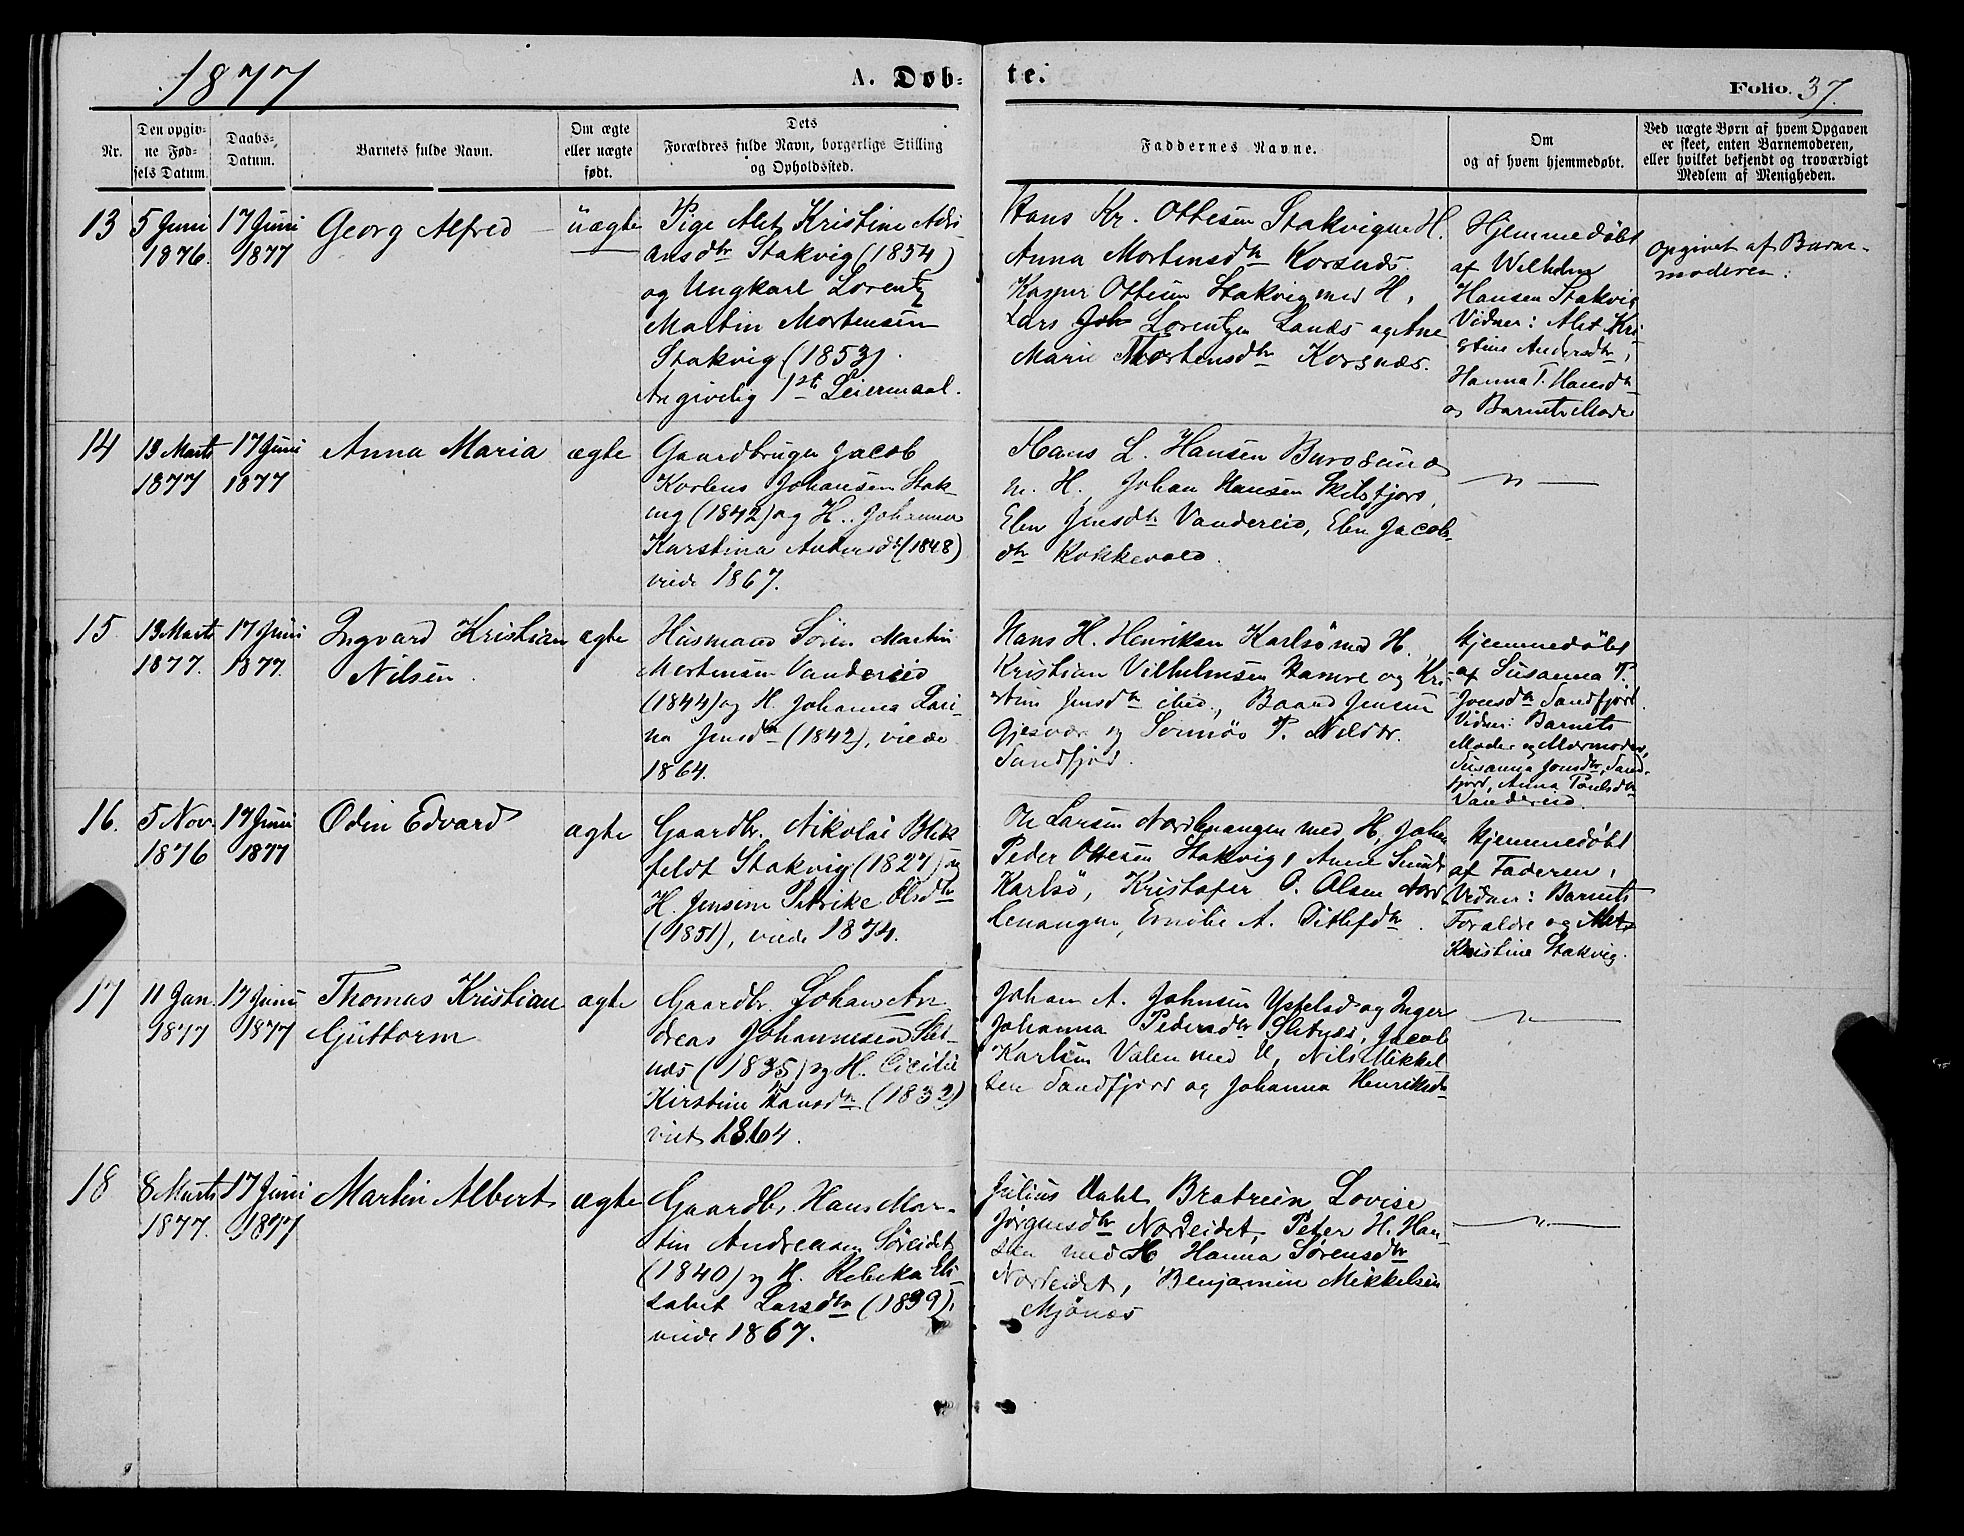 1877
A. Døb-
te.
Folio. 37.
Nr.
Den opgiv-
ne Fød-
sels Datum.
Daabs-
Datum.
Barnets fulde Navn.
Om ægte
eller uægte
født.
Dets
Forældres fulde Navn, borgerlige Stilling
og Opholdssted.
Faddernes Navne.
Om
og af hvem hjemmedøbt.
Ved uægte Børn af hvem Opgaven
er skeet, enten Barnemoderen,
eller hvilket bekjendt og troværdigt
Medlem af Menigheden.
13
5 Juni
1876.
17 Juni
1877
Georg Alfred
uægte
Pige Alet Kristine Adri-
ansdtr Stakvig (1854)
og Ungkarl Lorentz
Martin Mortensen
Stakvig (1853).
Angivelig 1ste Leiermaal.
Hans Kr. Ottesen Stakvig m H.
Anna Mortensdtr Korsnæs.
Kasper Ottesen Stakvig med H,
Lars Joh Lorentzen Sandø og Ane
Marie Mortensdtr Korsnæs.
Hjemmedøbt
af Wilhelm
Hansen Stakvig
Vidner: Alet Kri-
stine Andersdtr,
Hanna T. Hansdtr
og Barnets Moder
Opgivet af Barne-
moderen.
14
13 Marts
1877
17 Juni
1877
Anna Maria
ægte
Gaardbruger Jacob
Johansen Stak-
vig (1842) og H. Johanna
Karstina Andersdtr (1848)
viede 1867.
Hans L. Hansen Burøsund
m. H. Johan Hansen Skibsfjord,
Elen Jensdtr Vandereid, Elen Jacobs-
dtr Kokkevold.
— " —
15.
13 Marts
1877.
17 Juni
1877.
Ingvard Kristian
Nilsen.
ægte
Husmand Søren Martin
Mortensen Vandereid
(1844) og H. Johanna Lari-
na Jensdtr (1842), viede
1864.
Hans H. Henriksen Karlsø med H.
Kristian Vilhelmsen Hamre og Kri-
stine Jensdtr ibid., Baard Jensen
Gjesvær og P. Nilsdtr.
Sandfjord.
Hjemmedøbt
af Susanna P.
Jonsdtr Sandfjord.
Vidner: Barnets
Moder og Mormoder,
Susanna Jonsdtr, Sand-
fjord, Anna Poulsdtr
Vandereid.
16.
5 Nov.
1876
17 Juni
1877
Odin Edvard
ægte
Gaardbr. Nikolai Blik-
feldt Stakvig (1827) og
H. Jensine Petrike Olsdtr
(1851), viede 1874.
Ole Larsen Nordlenangen med H, Johan
Peder Ottesen Stakvig, Anne
Karlsø, Kristofer O. Olsen Nord-
lenangen, Emilie A. Ditlefdtr.
Hjemmedøbt
af Faderen,
Vidner: Barnets
Forældre og Alet
Kristine Stakvig.
17
11 Jan.
1877
17 Juni
1877
Thomas Kristian
Guttorm
ægte
Gaardbr. Johan An-
dreas Johannesen Slet-
næs (1835) og H. Cicilie
Kirstine Hansdtr (1832)
viet 1864.
Johan A. Johnsen og Inger
Johanna Pedersdtr Sletnæs, Jacob
Karlsen Valen med H, Nils Mikkel-
sen Sandfjord og Johanna Henriksdtr
— " —
18
8 Marts
1877.
17 Juni
1877
Martin Albert
ægte
Gaardbr. Hans Mar-
tin Andreasen Søreidet
(1840) og H. Rebeka Eli-
sabet Larsdtr (1839),
viede 1867.
Julius Dahl Bratrein, Lovise
Jørgensdtr Nordeidet, Peter H. Han-
sen med H Hanna Sørensdtr
Nordeidet, Benjamin Mikkelsen
Mjønes
— " —